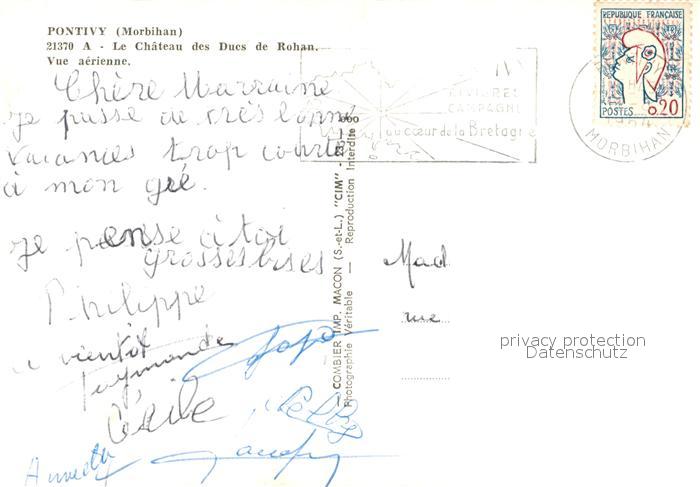 PONTIVY (Morbihan)
21370 A - Le Château des Ducs de Rohan.
Vue aérienne.
Chère Marraine
je passe de très bonne
vacances trop courte
à mon gré.
je pense à toi
grosses bises
Philippe
a vientôt
Raymonde
REPUBLIQUE FRANÇAISE
POSTES 0.20
RIVIERES
CAMPAGNE
au cœur de la Bretagne
MORBIHAN
COMBIER IMP. MACON (S.-et-L.) "CIM"
Photographie Véritable — Reproduction Interdite
Mad
rue
privacy protection
Datenschutz